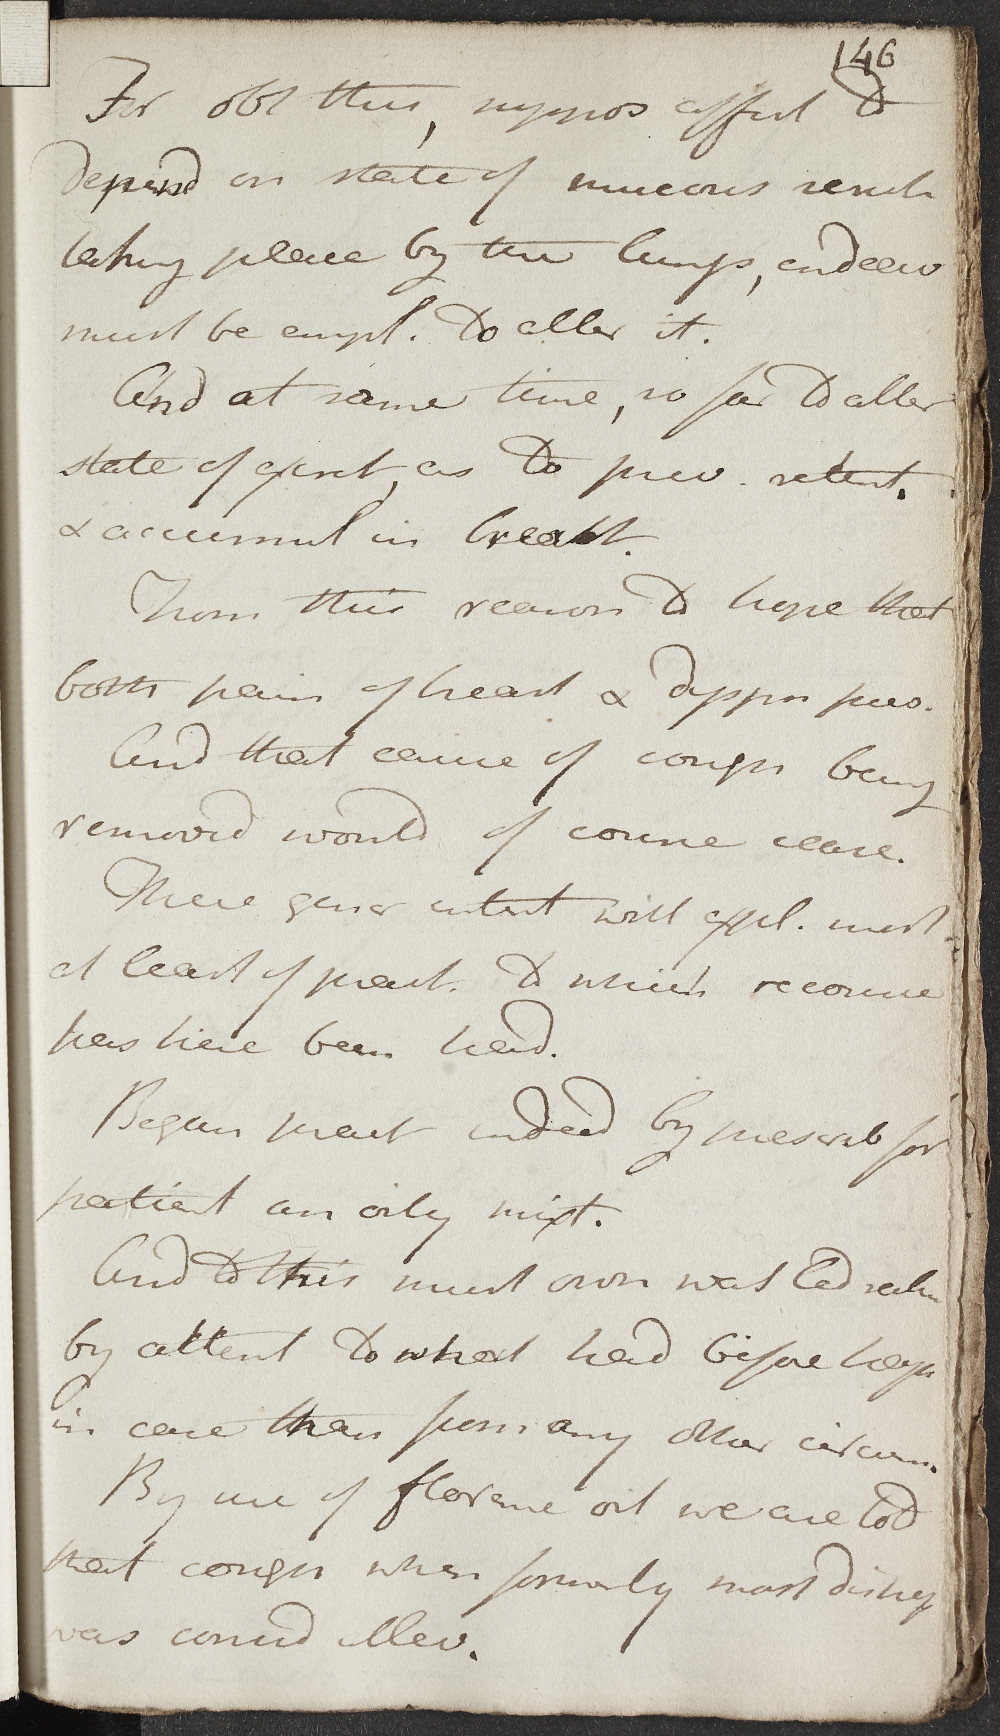 146
For obt this, suppos affect to
depend on state of mucous secret
taking place by the lungs, endeav
must be empl. to alter it.
And at same time, so far to alter
state of expect, as to prev. retent.
& accumul in breast.
From this reason to hope that
both pain of breast & dyspn prev.
And that cause of cough being
removed would of course cease.
These gener intent will expl. most
at least of pract. to which recourse
has here been had.
Began pract indeed by prescrib for
patient an oily mixt.
And to this must own was led rather
by attent to what had before happ
in case than from any other circum.
By use of florence oil we are told
that cough when formerly most distress
was consid allev.